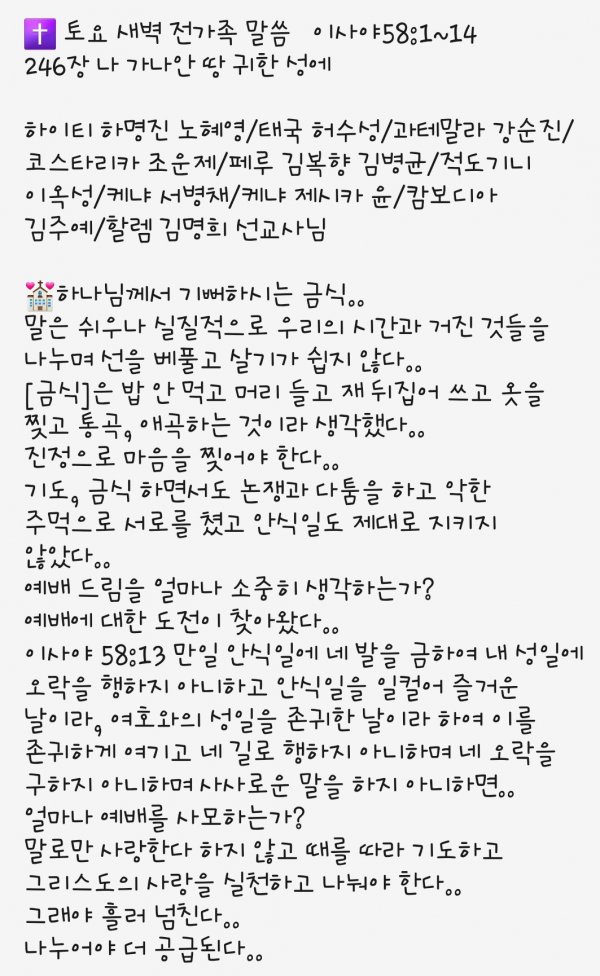 ✝️ 토요 새벽 전가족 말씀 이사야58:1~14
246장 나 가나안 땅 귀한 성에
하이티 하명진 노혜영/태국 허수성/과테말라 강순진/
코스타리카 조운제/페루 김복향 김병균/적도기니
이옥성/케냐 서병채/케냐 제시카 윤/캄보디아
김주예/할렘 김명희 선교사님
💒하나님께서 기뻐하시는 금식..
말은 쉬우나 실질적으로 우리의 시간과 거진 것들을
나누며 선을 베풀고 살기가 쉽지 않다..
[금식]은 밥 안 먹고 머리 들고 재 뒤집어 쓰고 옷을
찢고 통곡, 애곡하는 것이라 생각했다..
진정으로 마음을 찢어야 한다..
기도, 금식 하면서도 논쟁과 다툼을 하고 악한
주먹으로 서로를 쳤고 안식일도 제대로 지키지
않았다..
예배 드림을 얼마나 소중히 생각하는가?
예배에 대한 도전이 찾아왔다..
이사야 58:13 만일 안식일에 네 발을 금하여 내 성일에
오락을 행하지 아니하고 안식일을 일컬어 즐거운
날이라, 여호와의 성일을 존귀한 날이라 하여 이를
존귀하게 여기고 네 길로 행하지 아니하며 네 오락을
구하지 아니하며 사사로운 말을 하지 아니하면..
얼마나 예배를 사모하는가?
말로만 사랑한다 하지 않고 때를 따라 기도하고
그리스도의 사랑을 실천하고 나눠야 한다..
그래야 흘러 넘친다..
나누어야 더 공급된다..